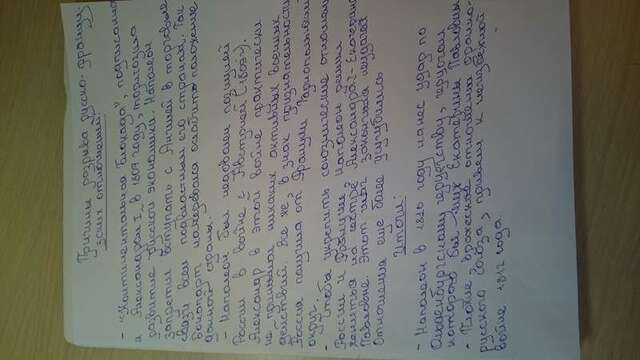 Причины разрыва русско-францу
зских отношений:
- "Континентальная блокада", подписана
Александром I, в 1807 году, тормозила
развитие русской экономики. Наполеон
запретил вступать с Англией в торговые
связи всем подвластным его странам. Так
Бонапарт, надеялся ослабить положение
данной страны.
- Наполеон был недоволен позицией
России в войне с Австрией (1809г).
Александр в этой войне практически
не принимал никаких активных военных
действий. Все же, в знак признательности
Россия получила от Франции Тарнопольский
округ.
- Чтобы укрепить союзнические отношения
России и Франции, Наполеон решил
жениться на сестре Александра I - Екатерине
Павловне. Этот шаг закончился неудачей
Отношения еще более усугубились
Итоги:
- Наполеон в 1810 году нанес удар по
Ольденбургскому герцогству, герцогом
которого был муж Екатерины Павловны
- Плохие, вражеские отношения франко-
русского союза, привели к неизбежной
войне 1812 года.